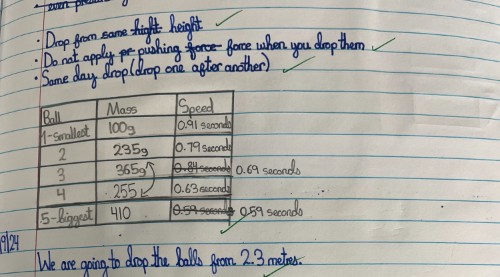 · Drop from same hight height
· Do not apply pr pushing force force when you drop them
· Same day drop (drop one after another)
Ball Mass Speed
1-smallest 100g 0.91 seconds
2 235g 0.79 seconds
3 365g 0.84 seconds 0.69 seconds
4 255 0.63 seconds
5-biggest 410 0.59 seconds 0.59 seconds
9/24
We are going to drop the balls from 2.3 metres.